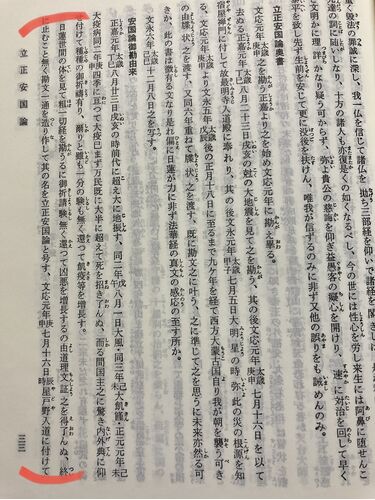 毀法の罪誠に深し、我一仏を信じて諸仏を抛ち三部経を仰いで諸経を
達の詞に随いしなり、十方の諸人も亦復是くの如くなるべし、今の世には性心を労し来生には阿鼻に堕せんこ
文明かに理詳かなり疑う可からず、弥よ貴公の慈誨を仰ぎ益愚客の癡心を開けり、速に対治を回して早く
を致し先ず生前を安じて更に没後を扶けん、唯我が信ずるのみに非ず又他の誤りをも誡めんのみ。
立正安国論奥書
文応元年太歳庚申之を勘う正嘉より之を始め文応元年に勘え畢る。
去ぬる正嘉元年太歳丁巳八月二十三日戌亥の尅の大地震を見て之を勘う、其の後文応元年太歳庚申七月十六日を以て
宿屋禅門に付て故最明寺入道殿に奉れり、其の後文永元年太歳甲子七月五日大明星の時弥此の災の根源を知
文応元年太歳庚申より文永五年太歳戊辰後の正月十八日に至るまで九ケ年を経て西方大蒙古国自り我が朝を襲う可き
の由牒状之を渡す、又同六年重ねて牒状之を渡す、既に勘文之に叶う、之に準じて之を思うに未来亦然る可
きか、此の書は徴有る文なり是れ偏に日蓮が力に非ず法華経の真文の感応の至す所か。
文永六年太歳己巳十二月八日之を写す。
安国論御勘由来
正嘉元年太歳丁巳八月廿三日戌亥の時前代に超え大に地振す、同二年戊午八月一日大風・同三年己未大飢饉・正元元年己未
大疫病同二年庚申四季に亘つて大疫已まず万民既に大半に超えて死を招き了んぬ、而る間国主之に驚き内外典に仰
せ付けて種種の御祈祷有り、爾りと雖も一分の験も無く還つて飢疫等を増長す。
日蓮世間の体を見て粗一切経を勘うるに御祈請験無く還つて凶悪を増長するの由道理文証之を得了んぬ、終
に止むこと無く勘文一通を造り作して其の名を立正安国論と号す、文応元年庚申七月十六日辰時屋戸野入道に付けて
立正安国論
三三